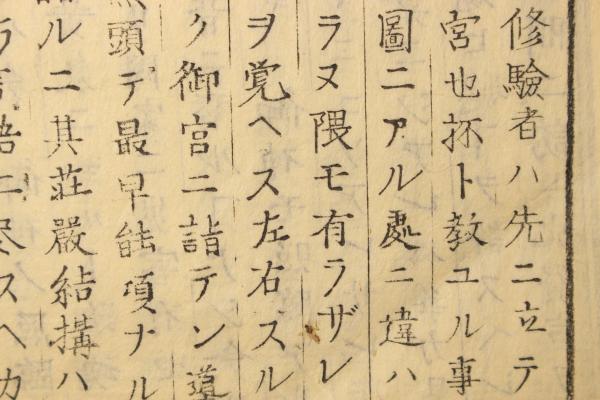 修驗者ハ先ニ立テ
宮也抔ト教ユル事
圖ニアル處ニ違ハ
ラヌ隈モ有ラザレ
ヲ覚ヘス左右スル
ク御宮ニ詣テン導
頭テ最早能頃ナル
ルニ其莊嚴結搆ハ
ラ言語ニ尽スヘカ